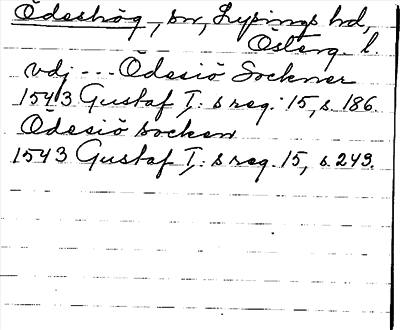 Ödeshög, sn, Lysings hd,
Österg. l.
vdj --- Ödesiö Sockner
1543 Gustaf I: s reg. 15, s. 186.
Ödesiö socken
1543 Gustaf I: s reg. 15, s. 243.